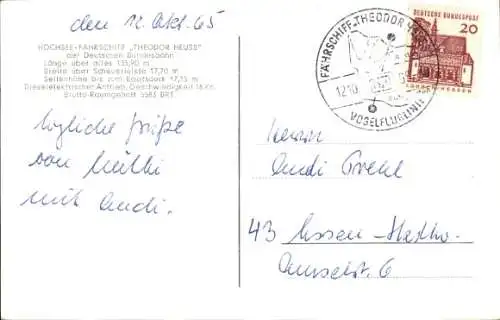 den 12. Okt. 65
HOCHSEE-FÄHRSCHIFF „THEODOR HEUSS"
der Deutschen Bundesbahn
Länge über alles 135,90 m
Breite über Scheuerleiste 17,70 m
Seitenhöhe bis zum Bootsdeck 17,15 m
Dieselelektrischer Antrieb, Geschwindigkeit 18 Kn.
Brutto-Raumgehalt 5583 BRT.
herzliche Grüße
von
mit Andi.
FÄHRSCHIFF „THEODOR
12.10.
VOGELFLUGLINIE
DEUTSCHE BUNDESPOST
20
LORSCH/HESSEN
Herrn
Andi
43 Essen-
6